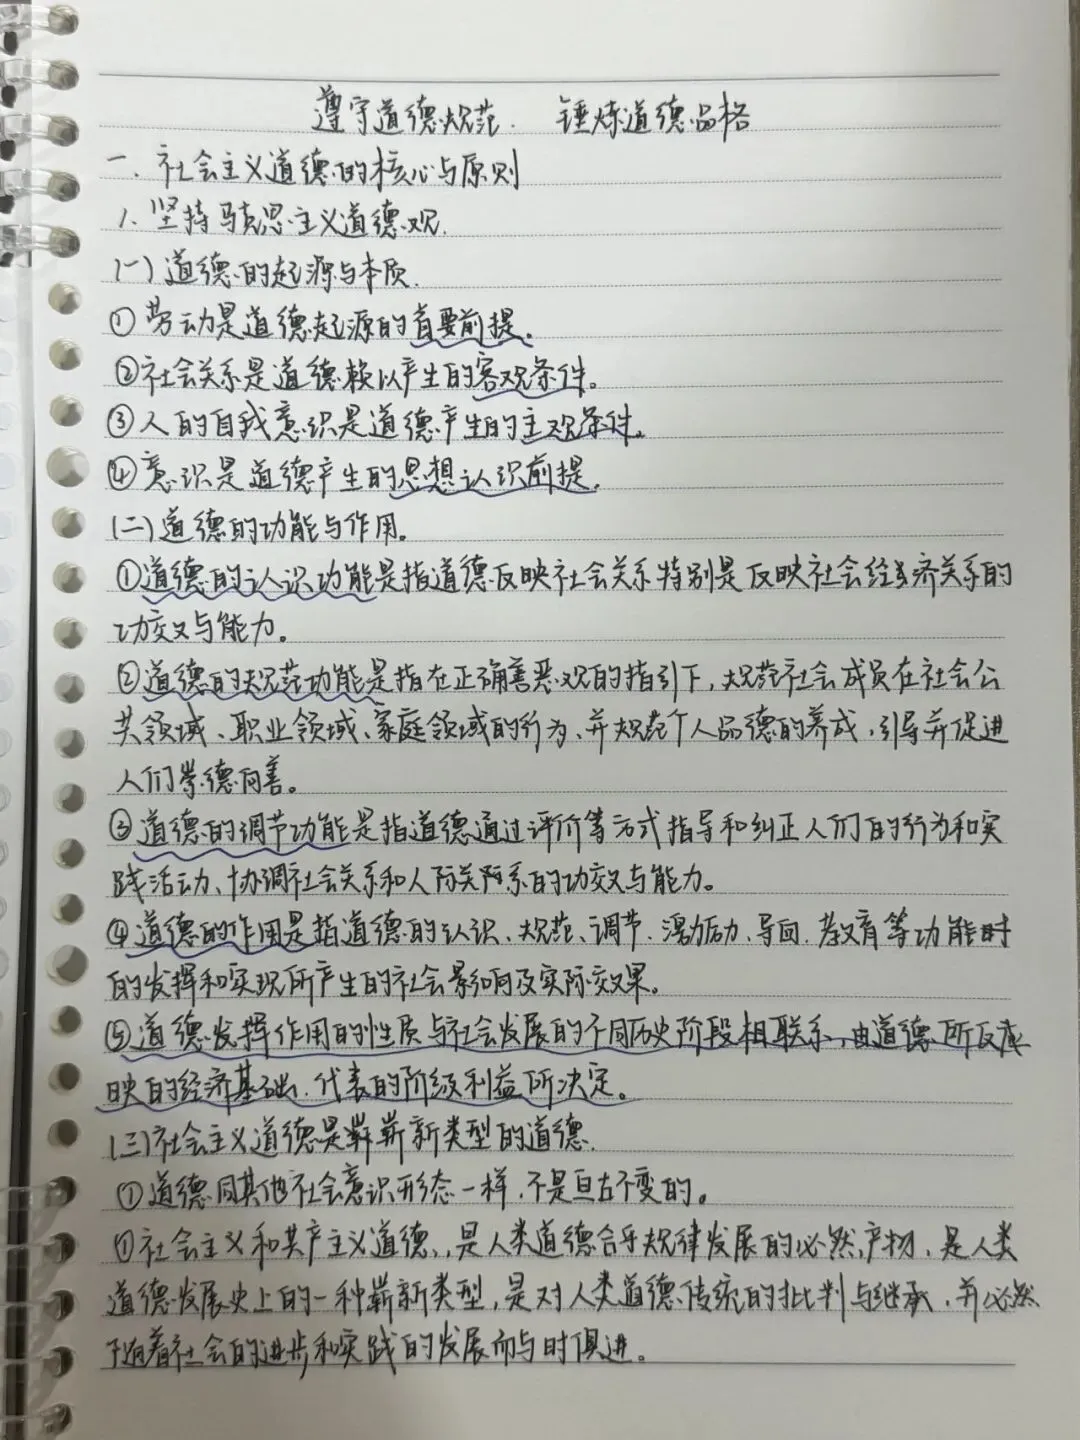 遵守道德规范. 锤炼道德品格
一、社会主义道德的核心与原则
1. 坚持马克思主义道德观.
(一)道德的起源与本质.
①劳动是道德起源的首要前提。
②社会关系是道德赖以产生的客观条件。
③人的自我意识是道德产生的主观条件。
④意识是道德产生的思想认识前提.
(二)道德的功能与作用。
①道德的认识功能是指道德反映社会关系特别是反映社会经济关系的
功效与能力。
②道德的规范功能是指在正确善恶观的指引下,规范社会成员在社会公
共领域、职业领域、家庭领域的行为、并规范个人品德的养成,引导并促进
人们崇德向善。
③道德的调节功能是指道德通过评价等方式指导和纠正人们的行为和实
践活动、协调社会关系和人际关系的功效与能力。
④道德的作用是指道德的认识、规范、调节.激励、导向.教育等功能时
的发挥和实现所产生的社会影响及实际效果。
⑤道德发挥作用的性质与社会发展的不同历史阶段相联系,由道德所反
映的经济基础.代表的阶级利益所决定。
(三)社会主义道德是崭新类型的道德.
①道德同其他社会意识形态一样,不是亘古不变的。
①社会主义和共产主义道德,是人类道德合乎规律发展的必然产物、是人类
道德发展史上的一种崭新类型,是对人类道德传统的批判与继承、并必然
随着社会的进步和实践的发展而与时俱进。